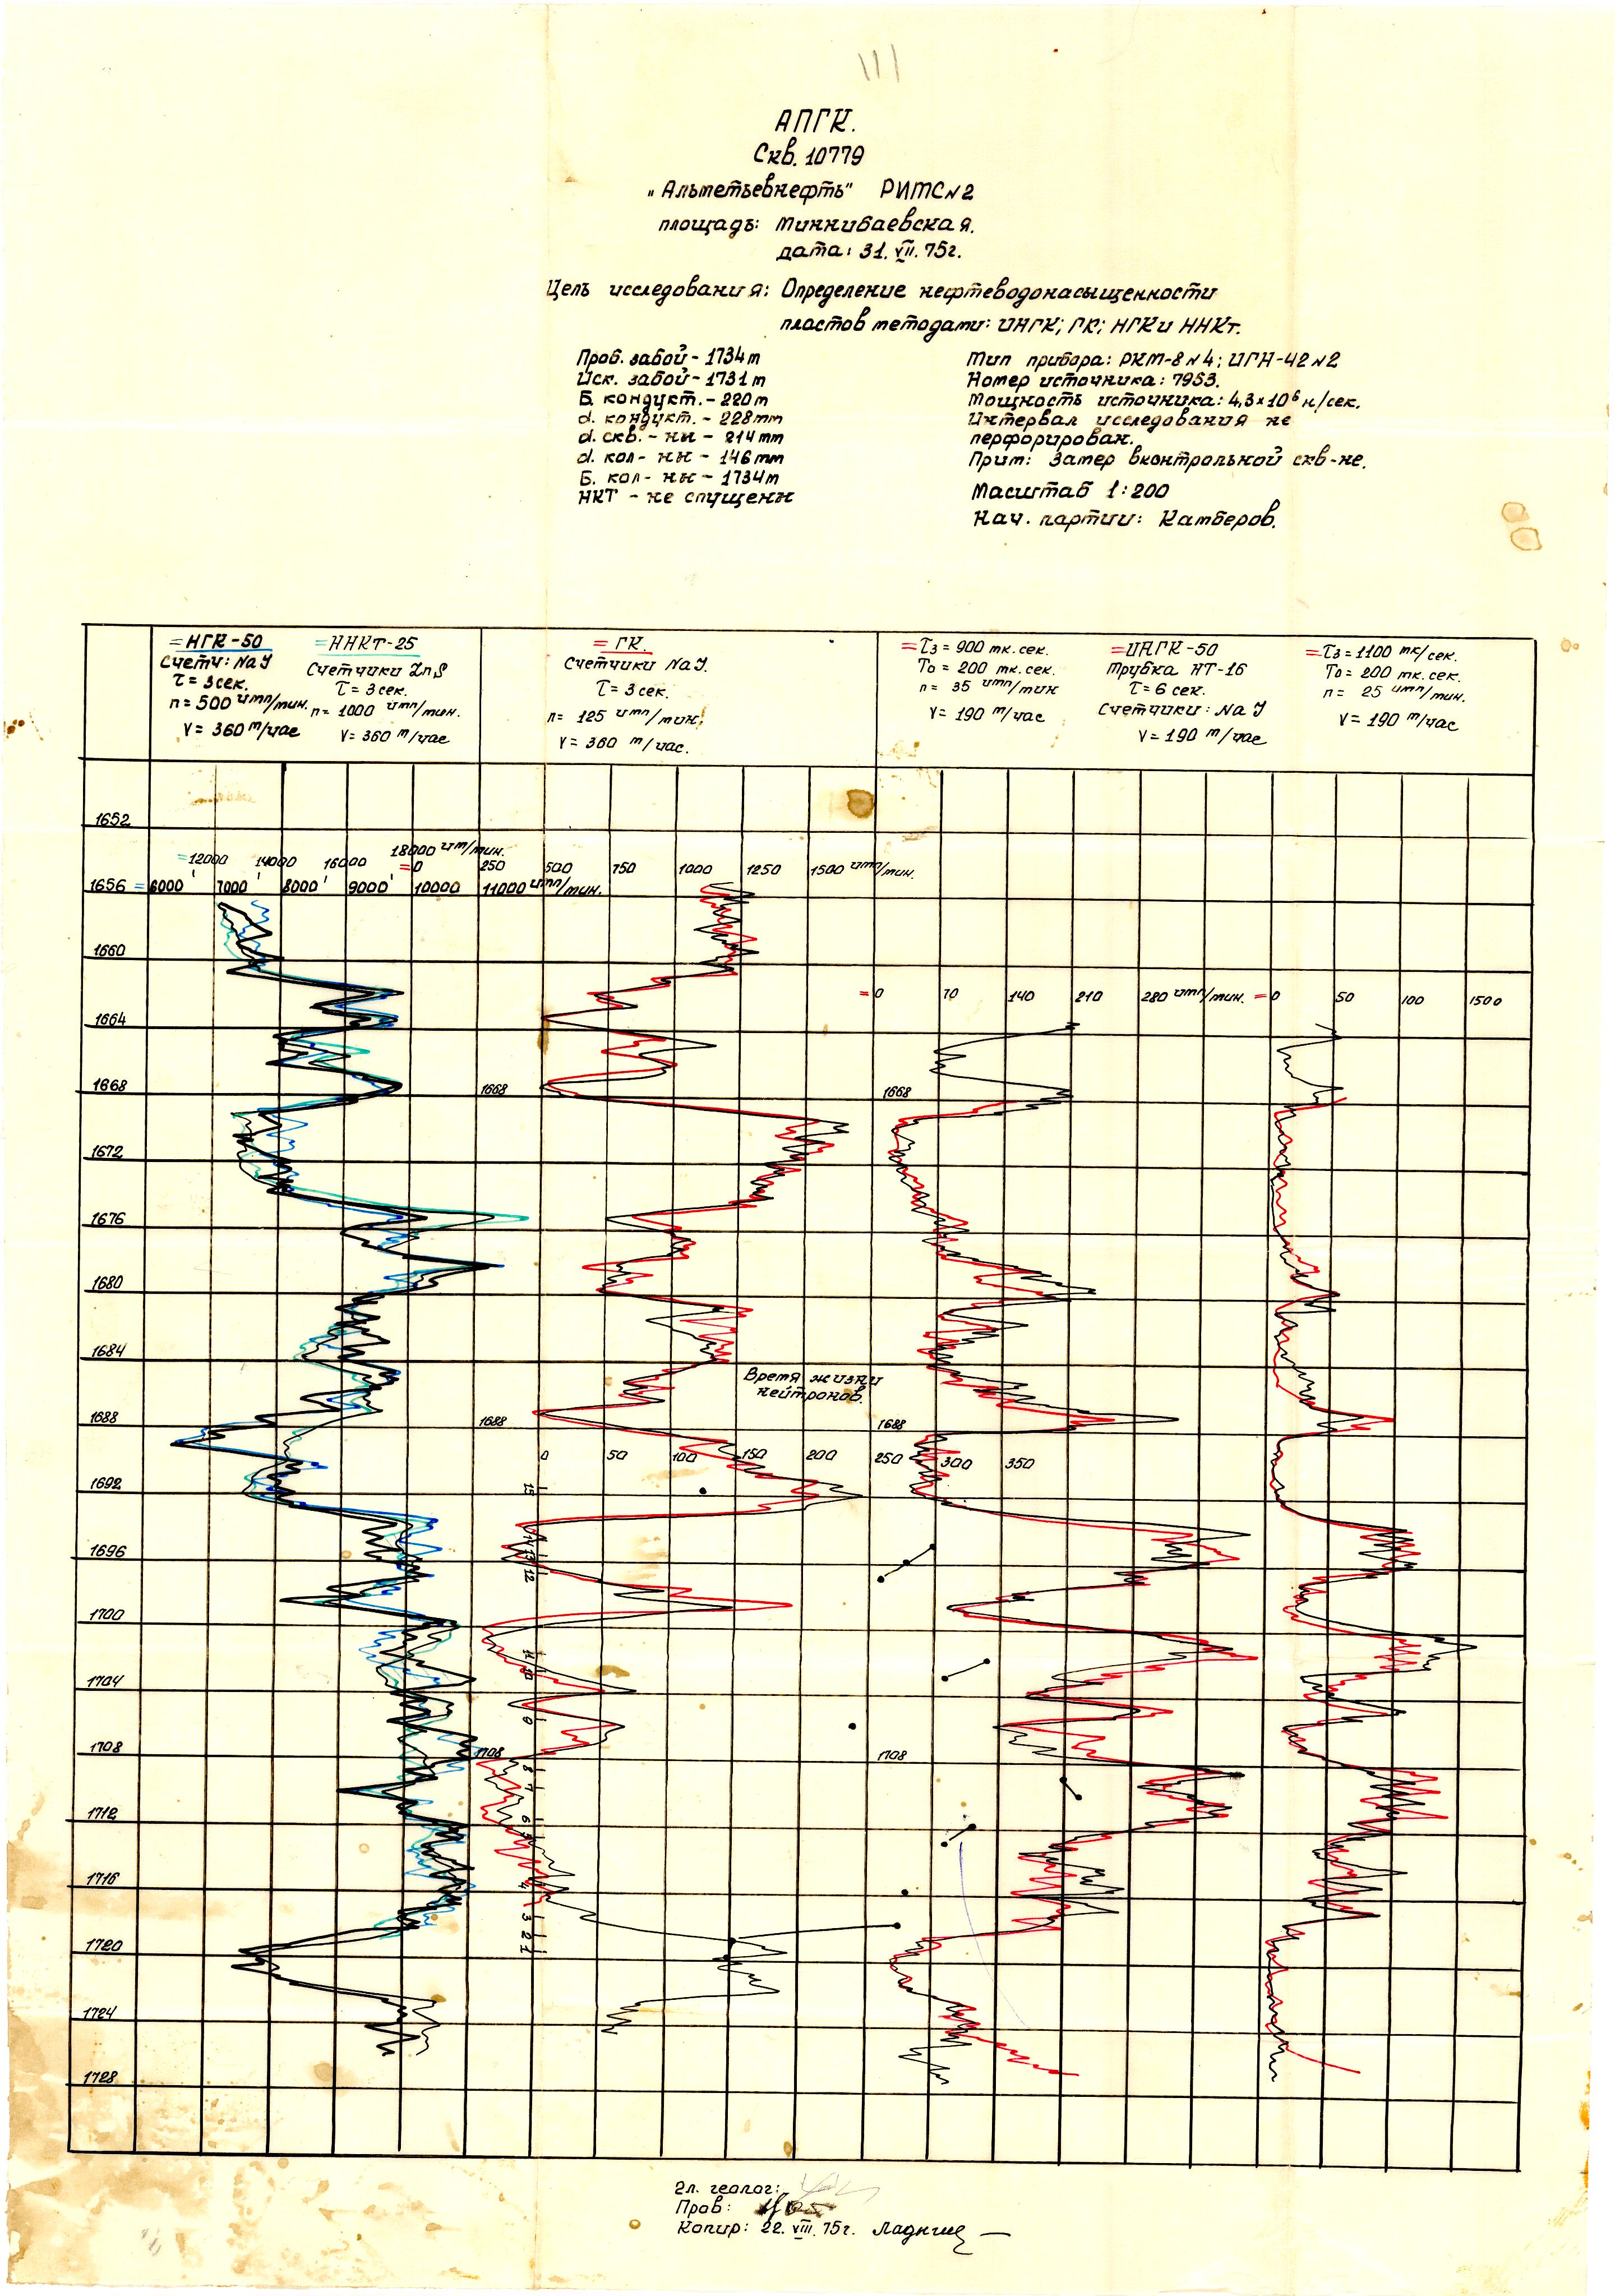 АПГК.
Скв. 10779
„Альметьевнефть" РИТС №2
площадь: Миннибаевская.
дата: 31. VII. 75г.
Цель исследования: Определение нефтеводонасыщенности
пластов методами: ИНГК; ГК; НГК и ННКт.
Проб. забой - 1734 м
Иск. забой - 1731 м
Б. кондукт. - 220 м
d. кондукт. - 228 мм
d. скв. - ны - 214 мм
d. кол - ны - 146 мм
Б. кол - ны - 1734 м
НКТ - не спущены
Тип прибора: РКМ-8 №4; ИГН-42 №2
Номер источника: 7953.
Мощность источника: 4,3×10⁶ н/сек.
Интервал исследования не
перфорирован.
Прим: Замер в контрольной скв-не.
Масштаб 1:200
Нач. партии: Камберов.
= НГК-50
Счетч: NaJ
τ = 3 сек.
n = 500 имп/мин.
v = 360 м/час
= ННКТ-25
Счетчики ZnS
τ = 3 сек.
n = 1000 имп/мин.
v = 360 м/час
= ГК.
Счетчики NaJ.
τ = 3 сек.
n = 125 имп/мин.
v = 360 м/час.
= τз = 900 мк. сек.
То = 200 мк. сек.
n = 35 имп/мин
v = 190 м/час
= ИНГК-50
Трубка НТ-16
τ = 6 сек.
Счетчики: NaJ
v = 190 м/час
= τз = 1100 мк/сек.
То = 200 мк. сек.
n = 25 имп/мин.
v = 190 м/час
1652
= 12000 14000 16000 18000 имп/мин.
= 0 250 500 750 1000 1250 1500 имп/мин.
1656 = 6000 7000 8000 9000 10000 11000 имп/мин.
1660
= 0 70 140 210 280 имп/мин. = 0 50 100 1500
1664
1668 1668 1668
1672
1676
1680
1684
Время жизни
нейтронов.
1688 1688 1688
0 50 100 150 200 250 300 350
1692 15
14
1696 13
12
1700
11
1704 10
9
1708 1708 1708
8
7
1712 6
5
1716 4
3
1720 2
1
1724
1728
Гл. геолог:
Пров:
Копир: 22. VIII. 75г.